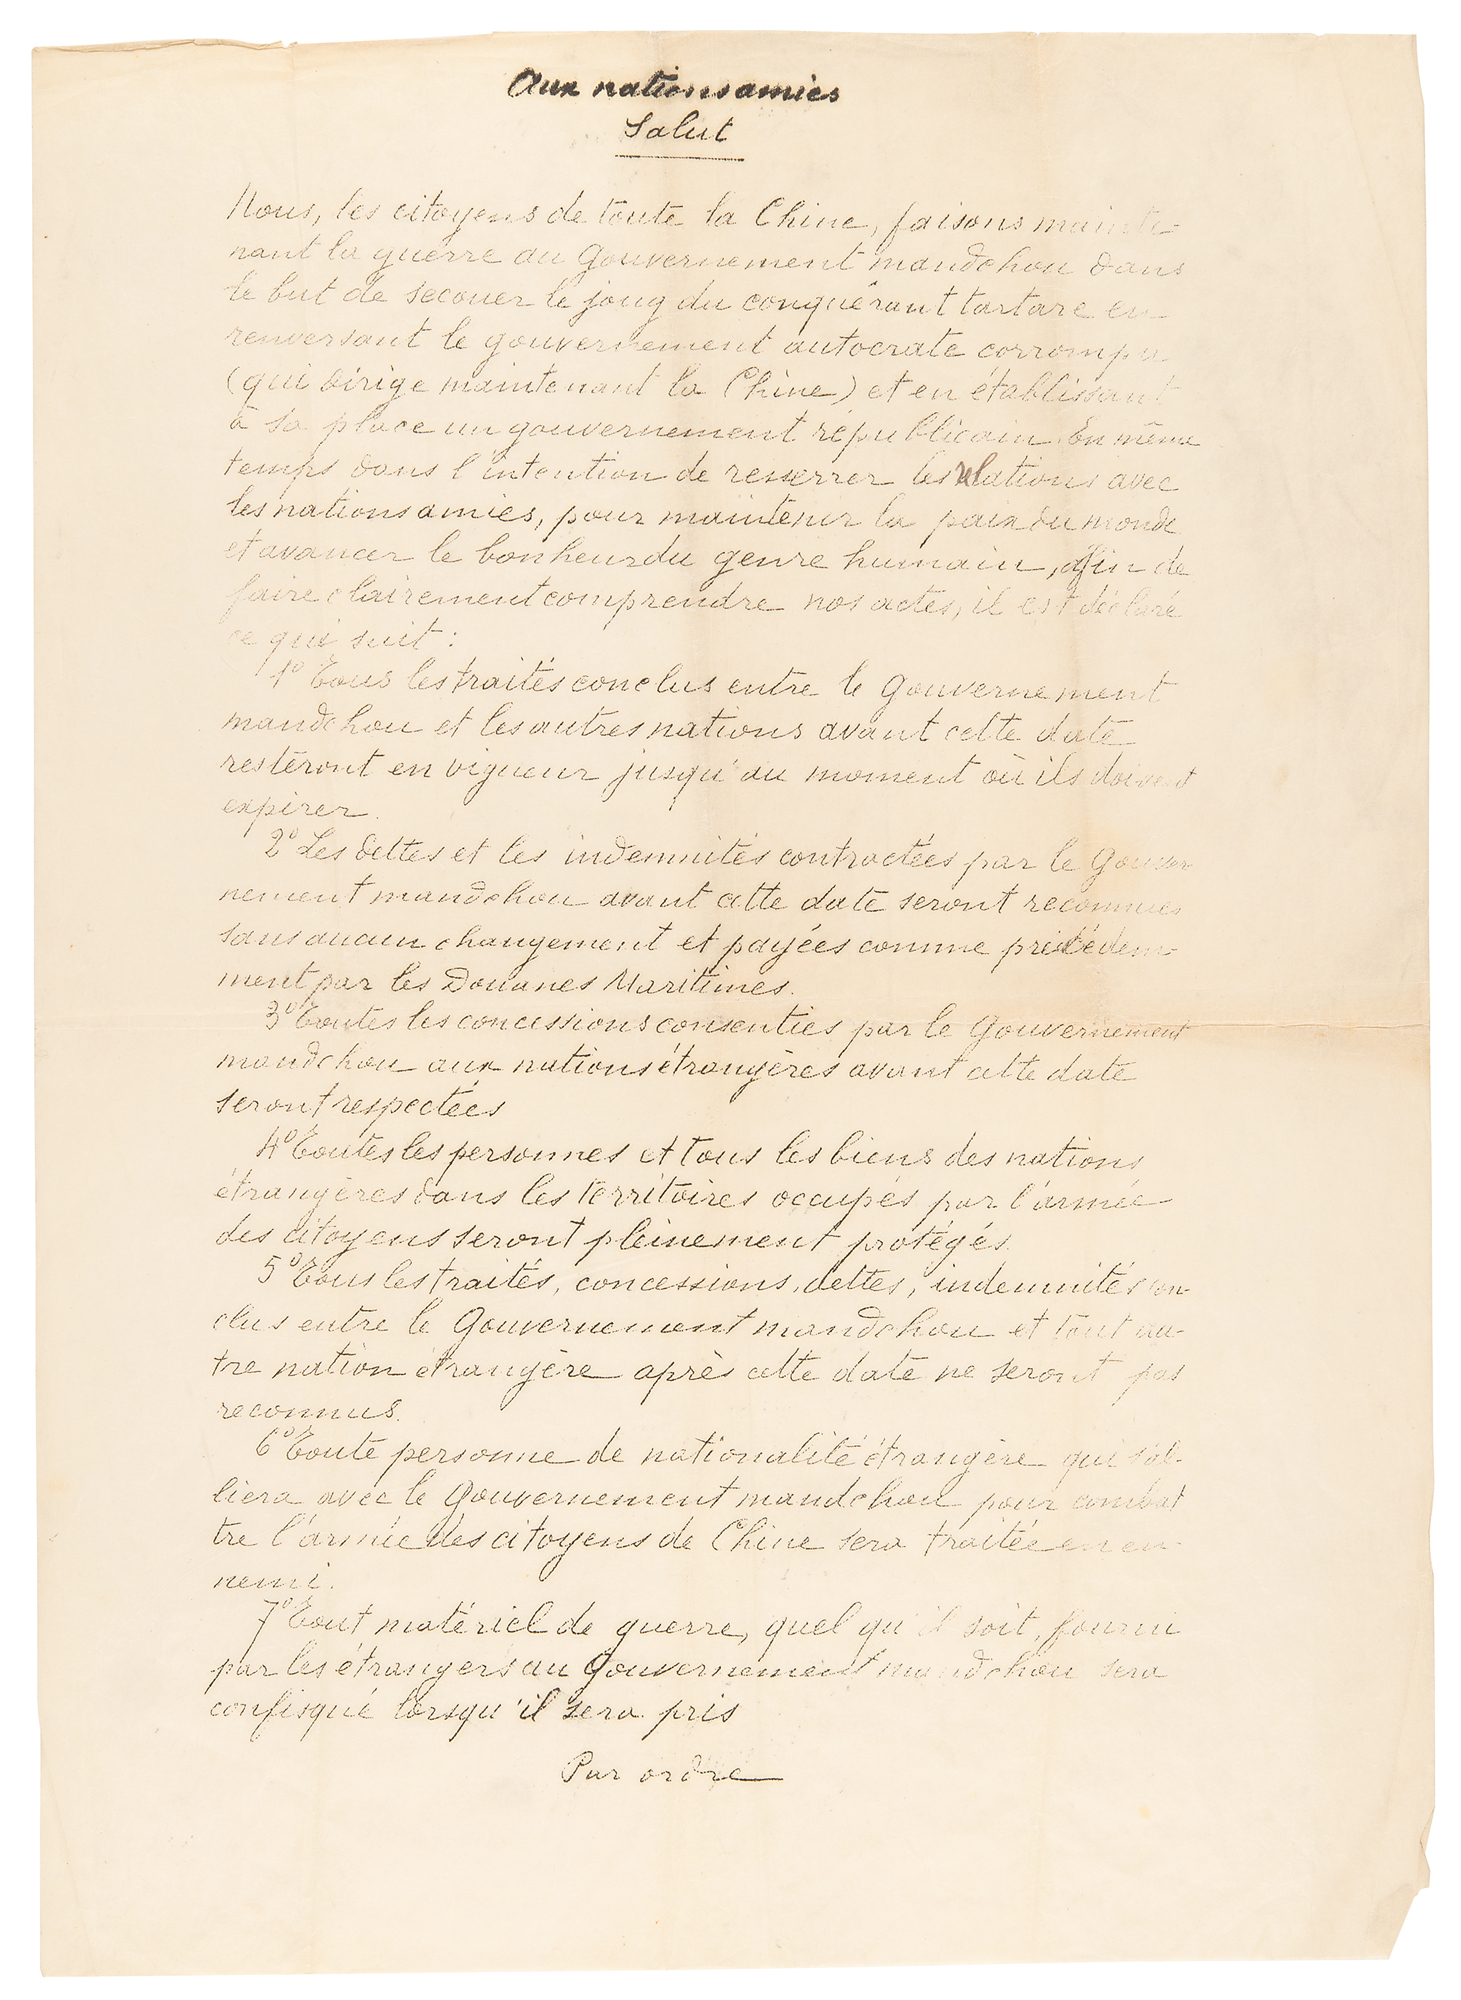 Aux nations amies
Salut
Nous, les citoyens de toute la Chine, faisons mainte-
nant la guerre au Gouvernement mandchou dans
le but de secouer le joug du conquérant tartare en
renversant le gouvernement autocrate corrompu
(qui dirige maintenant la Chine) et en établissant
à sa place un gouvernement républicain. En même
temps dans l'intention de resserrer les relations avec
les nations amies, pour maintenir la paix du monde
et avancer le bonheur du genre humain, afin de
faire clairement comprendre nos actes, il est déclaré
ce qui suit :
1° Tous les traités conclus entre le Gouvernement
mandchou et les autres nations avant cette date
resteront en vigueur jusqu'au moment où ils doivent
expirer.
2° Les dettes et les indemnités contractées par le Gouver
nement mandchou avant cette date seront reconnues
sans aucun changement et payées comme précédem-
ment par les Douanes Maritimes.
3° Toutes les concessions consenties par le Gouvernement
mandchou aux nations étrangères avant cette date
seront respectées
4° Toutes les personnes et tous les biens des nations
étrangères dans les territoires occupés par l'armée
des citoyens seront pleinement protégés.
5° Tous les traités, concessions, dettes, indemnités con-
clus entre le Gouvernement mandchou et tout au-
tre nation étrangère après cette date ne seront pas
reconnus.
6° Toute personne de nationalité étrangère qui s'al-
liera avec le Gouvernement mandchou pour combat
tre l'armée des citoyens de Chine sera traitée en en-
nemi.
7° Tout matériel de guerre, quel qu'il soit, fourni
par les étrangers au Gouvernement mandchou sera
confisqué lorsqu'il sera pris
Par ordre